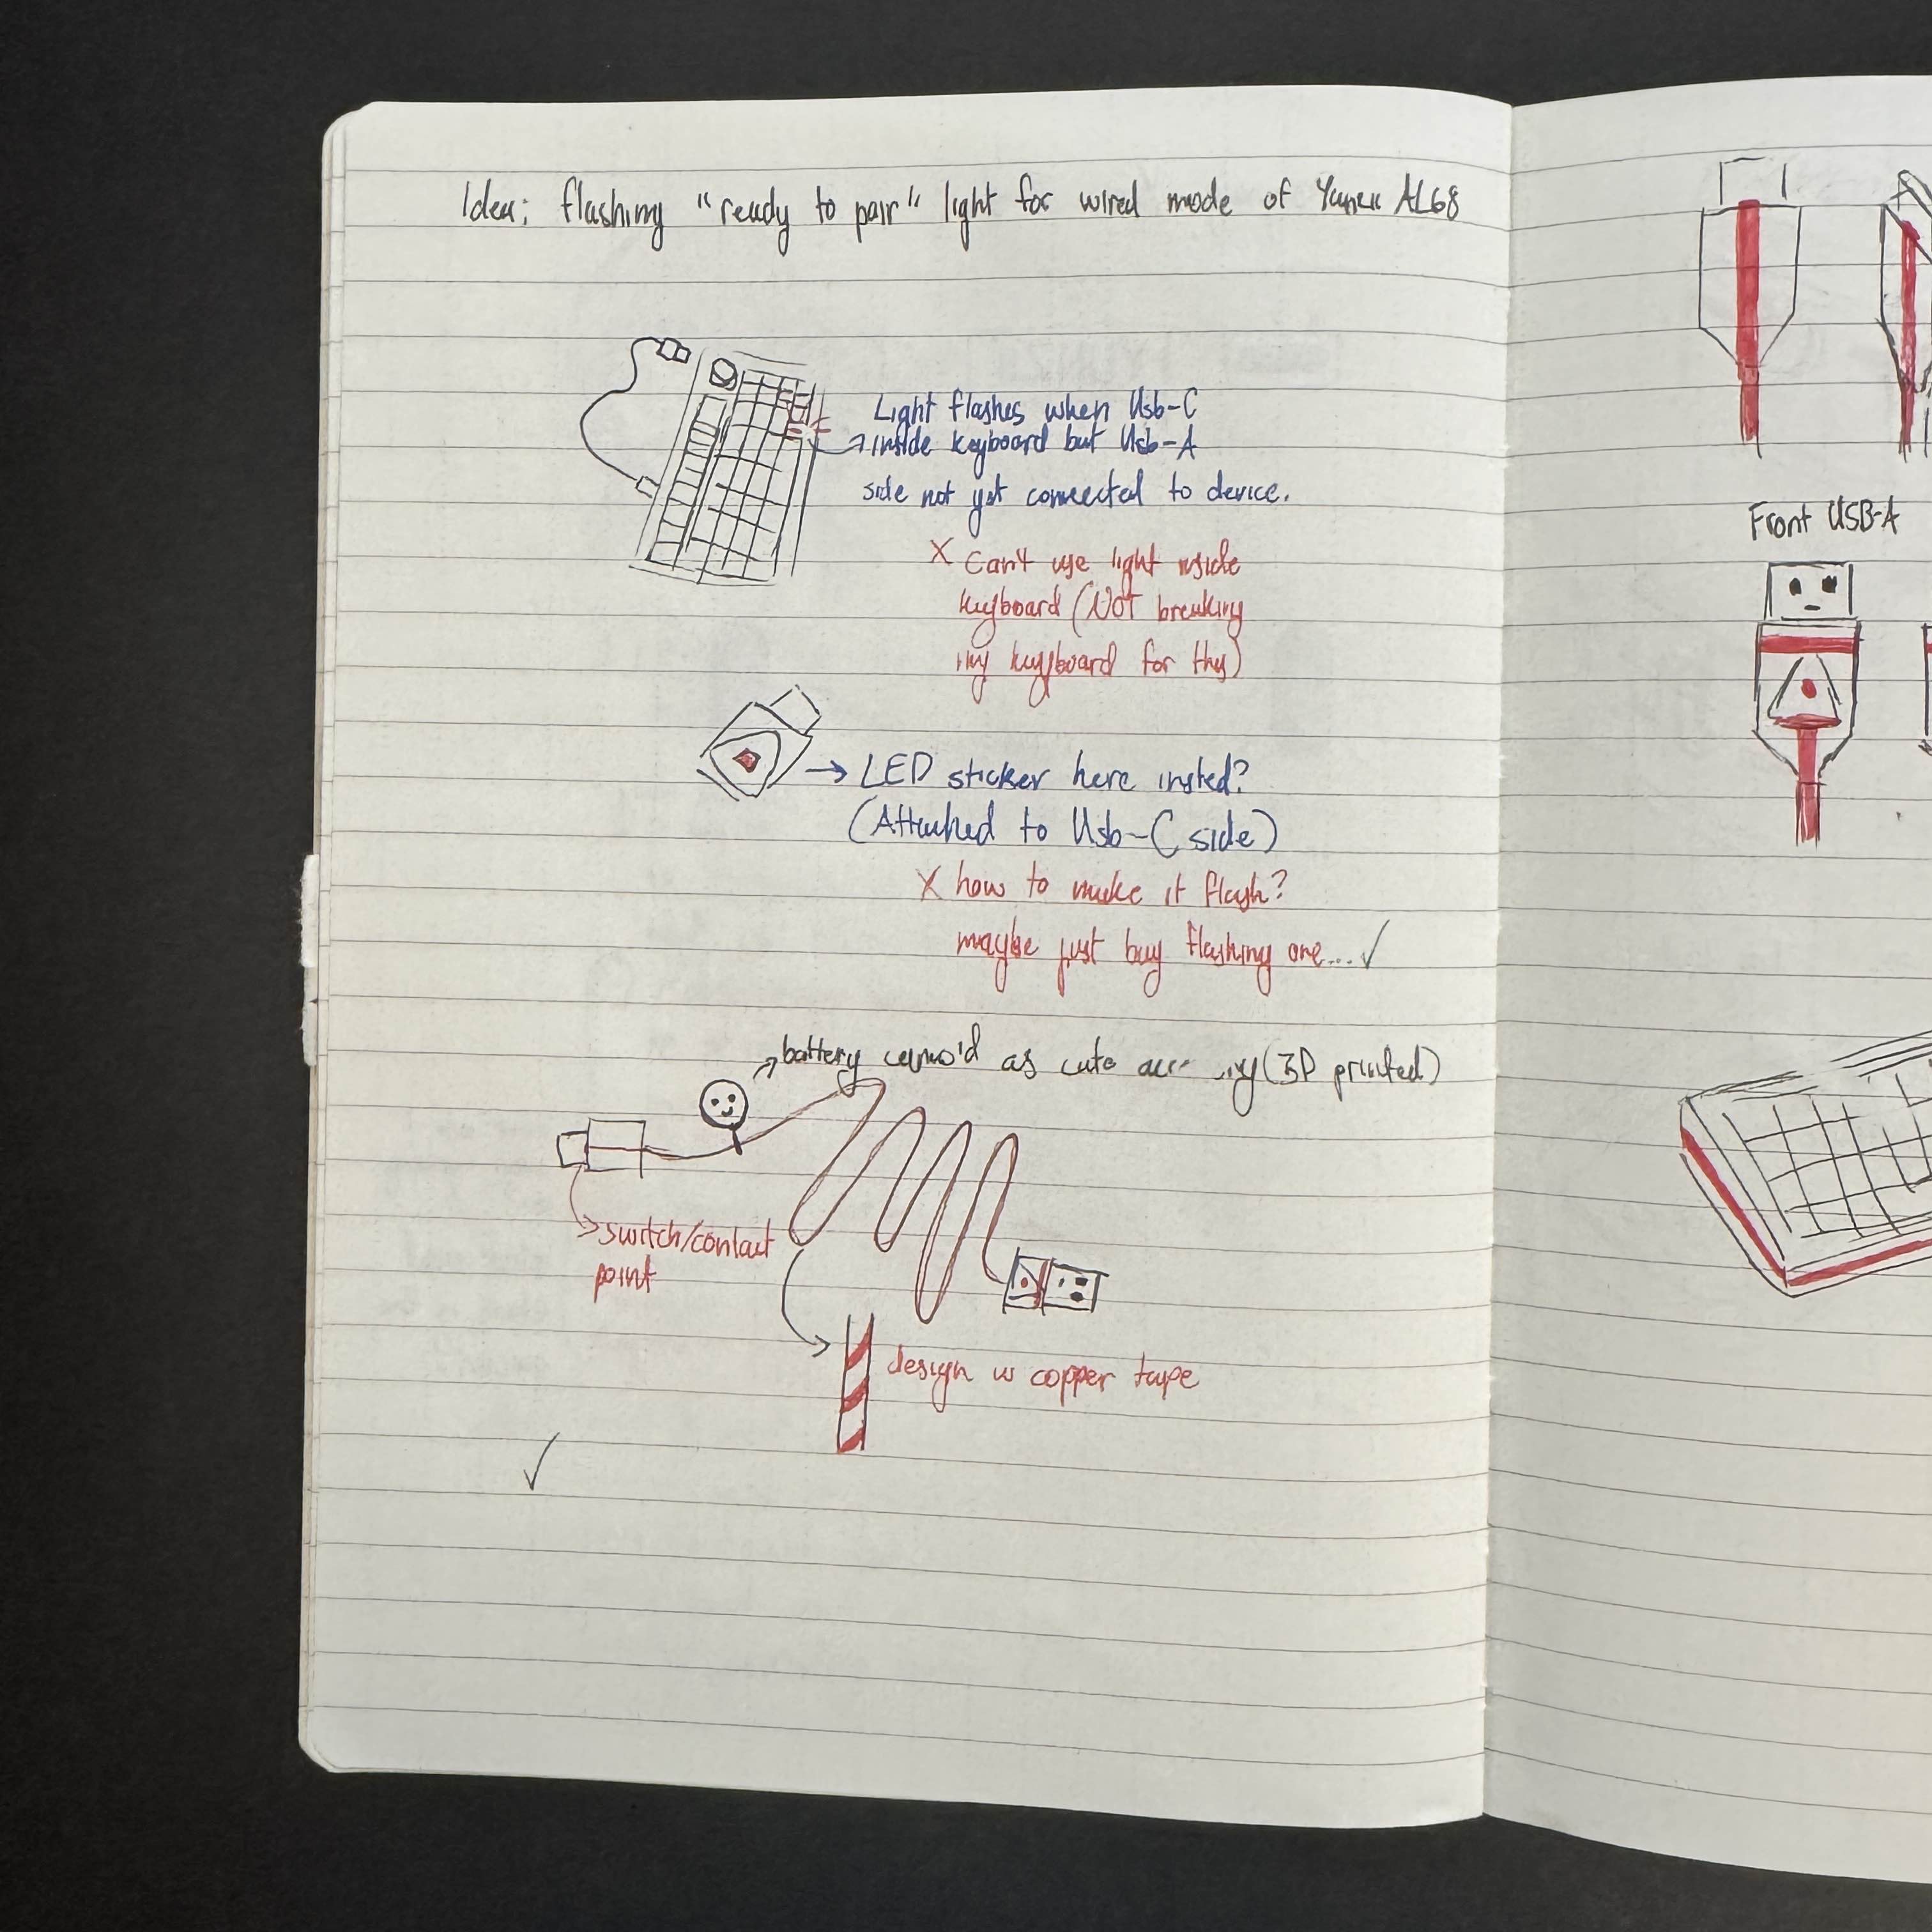 Idea: flashing "ready to pair" light for wired mode of AL68
Light flashes when Usb-C
inside keyboard but Usb-A
side not yet connected to device.
X Can't use light inside
keyboard (Not breaking
my keyboard for this)
LED sticker here insted?
(Attached to Usb-C side)
X how to make it flash?
maybe just buy flashing one.... ✓
battery as cute (3D printed)
switch/contact
point
design w copper tape
✓
Front USB-A